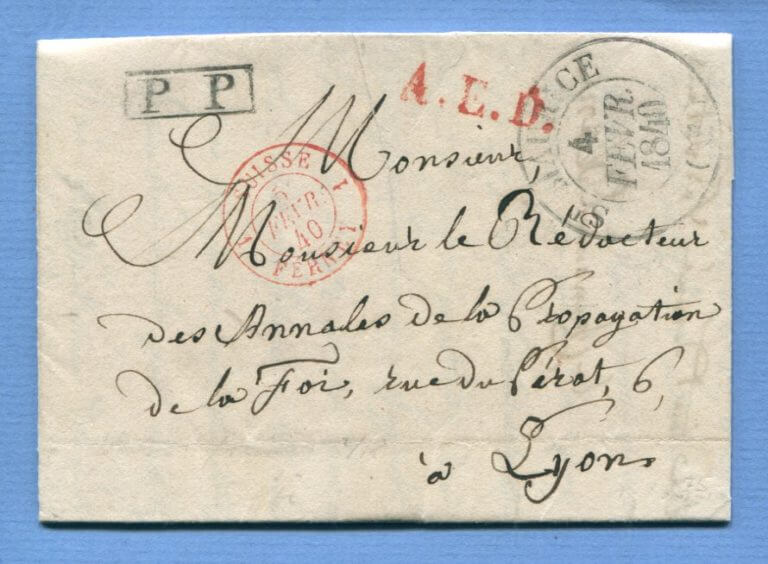 P P
A.E.D.
ST MAURICE
4
FEVR.
1840
SUISSE
5
FEVR.
40
FERNEY
Monsieur,
Monsieur le Rédacteur
des Annales de la Propagation
de la Foi, rue du Pérat, 6,
à Lyon